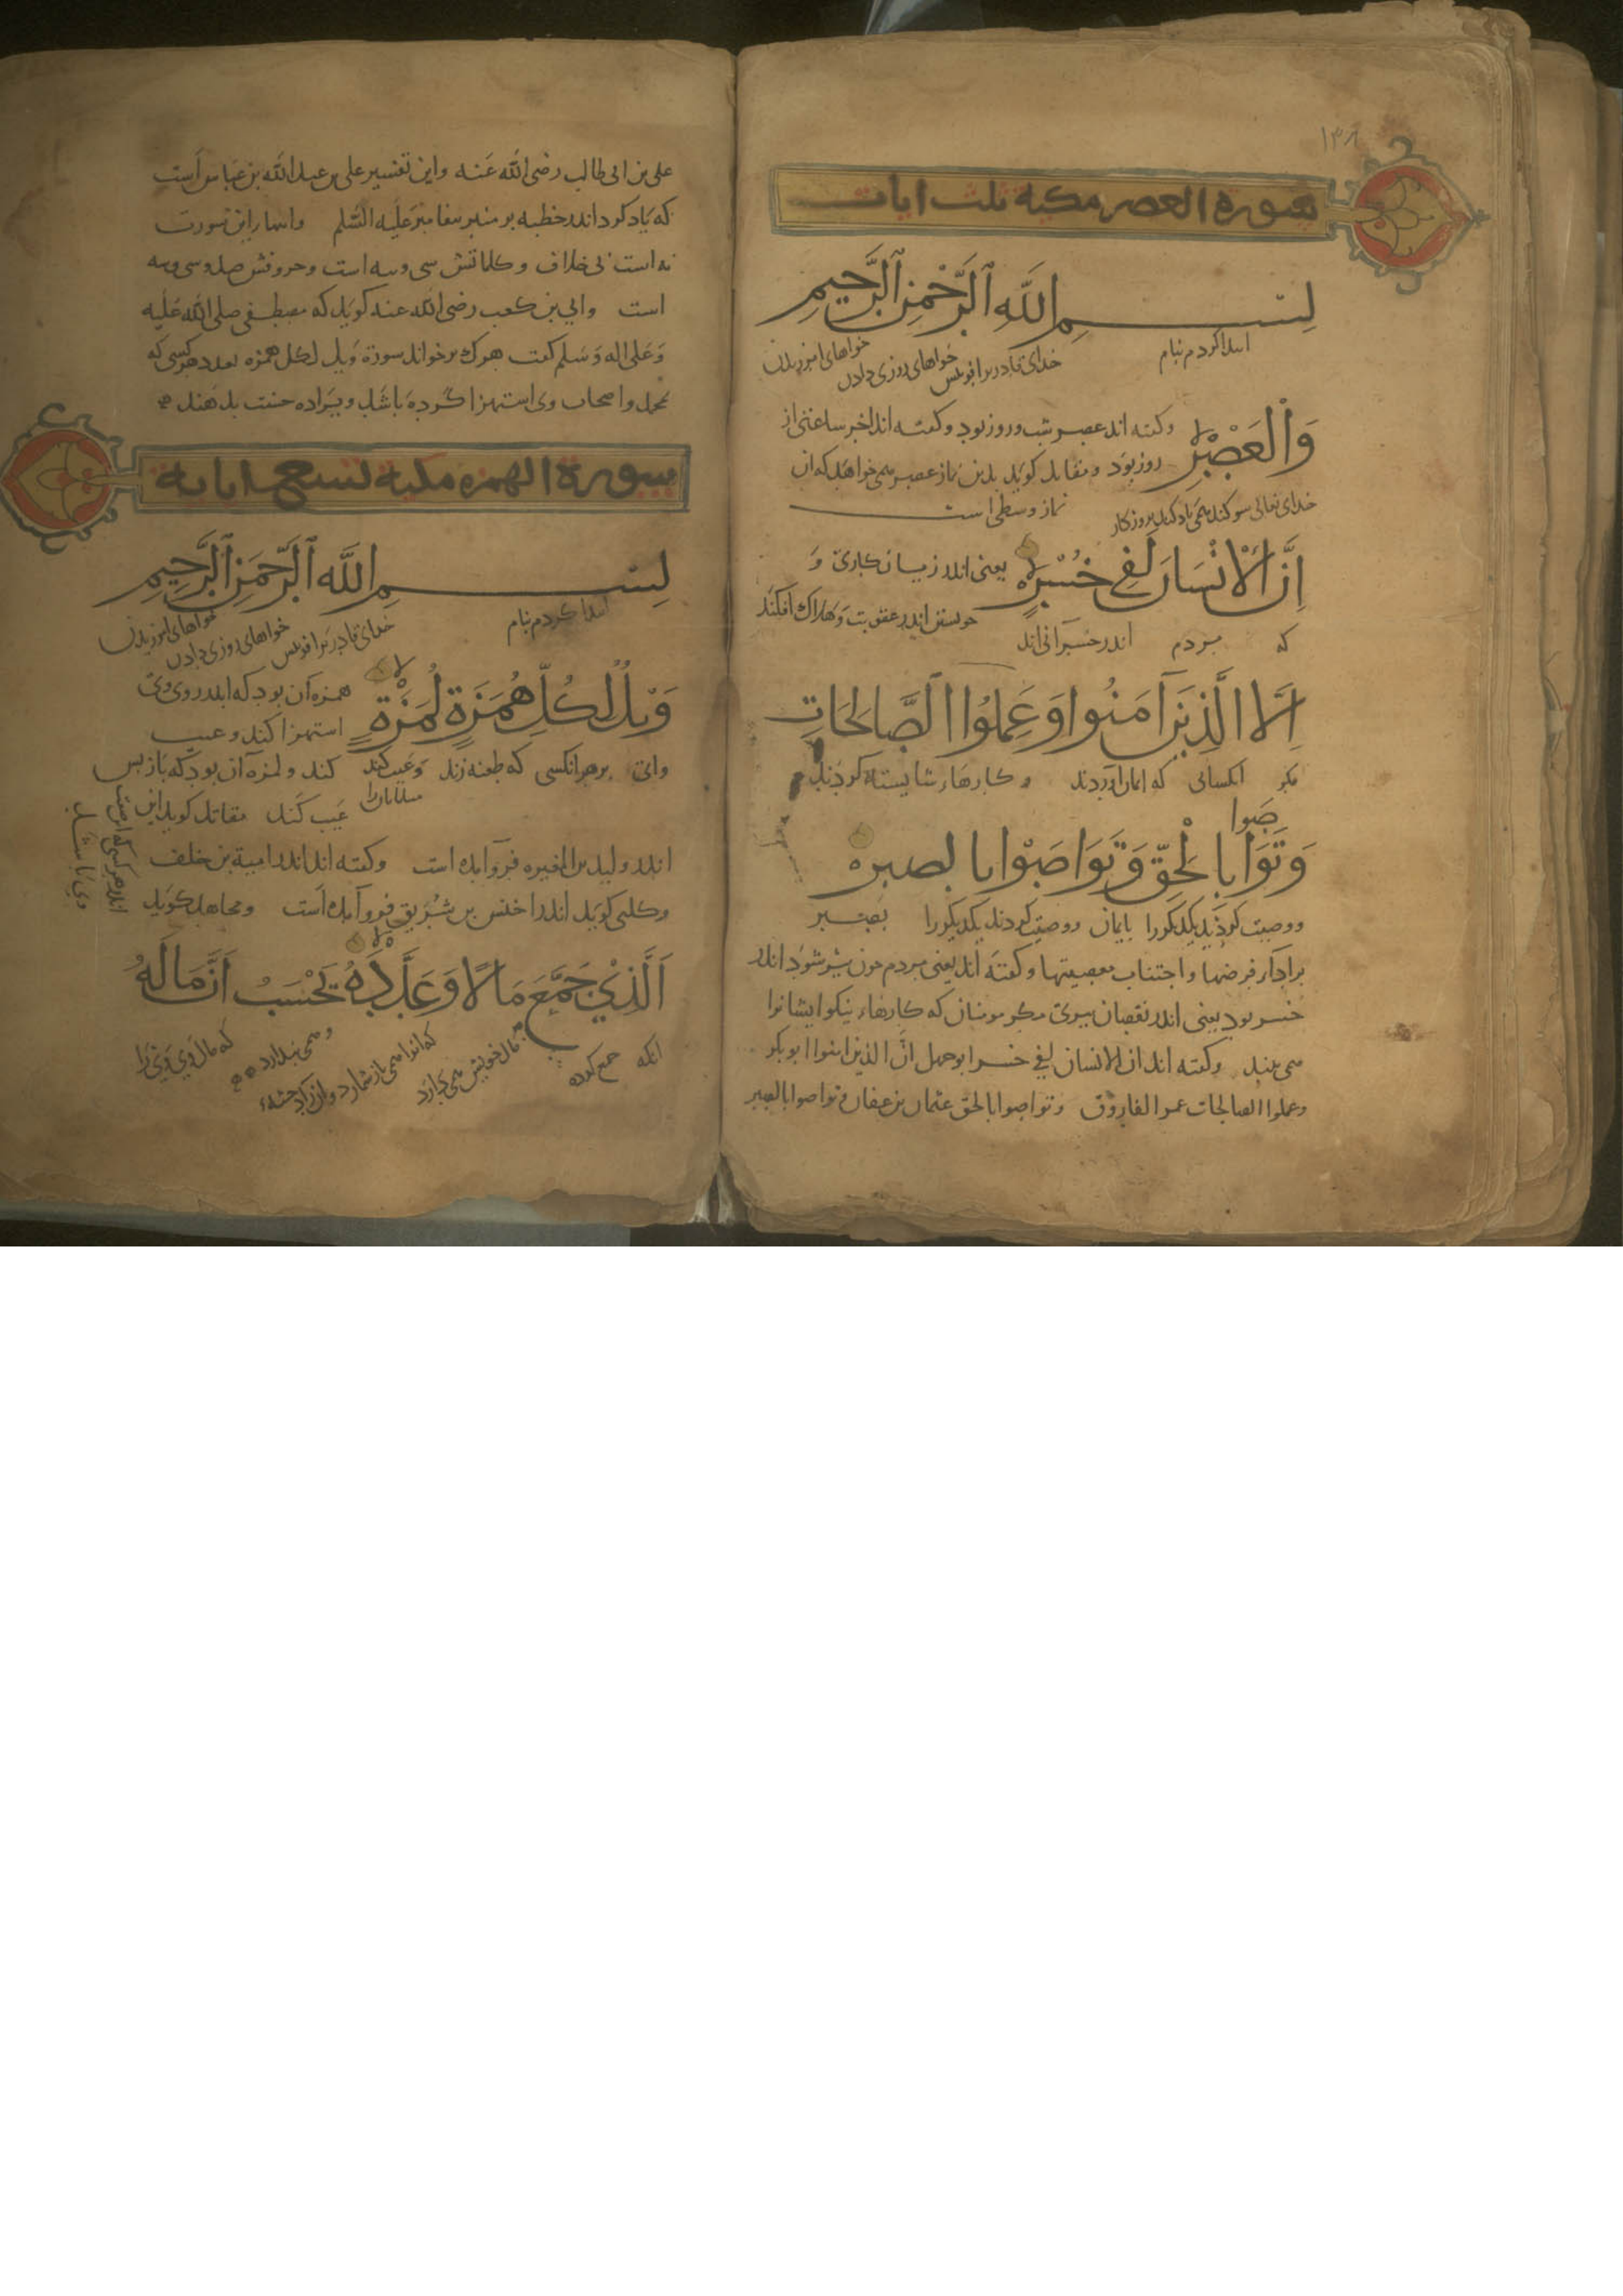 ۱۳۸
سورة العصر مكية ثلث ايات
بسم الله الرحمن الرحيم
ابتدا کردم بنام خدای قادر بر افرینش خواهای روزی دادن خواهای امرزیدن
وَالْعَصْرِ
وکفته اند عصر شب و روز بود وکفته اند اخر ساعتی از
روز بود ومقاتل کوید بدین نماز عصر می خواهد که ان
نماز وسطی است
خدای تعالی سوکند همی یاد کند بروزکار
اِنَّ الْاِنْسَانَ لَفِي خُسْرٍ
یعنی اندر زیان کاری و
اندر عقوبت و هلاک افکند
که مردم اندر خسرانی اند
اِلَّا الَّذِينَ آمَنُوا وَعَمِلُوا الصَّالِحَاتِ
مکر انکسانی که ایمان اوردند و کارهاء شایسته کردند
صَوا
وَتَوَا بِالْحَقِّ وَتَوَاصَوْا بالصبر
ووصیت کردند یکدیکررا بایمان ووصیت کردند یکدیکررا بصبر
براداء فرضها واجتناب معصیتها وکفته اند یعنی مردم چون پیر شود اندر
خسر بود یعنی اندر نقصان پیری مکر مومنان که کارهاء نیکو ایشانرا
می وکفته اند ان الانسان لفی خسر ابوجهل انّ الذین امنوا ابوبکر
وعملوا الصالحات عمر الفاروق وتواصوا بالحق عثمان بن عفان وتواصوا بالصبر
علی بن ابی طالب رضی الله عنه واین تفسیر علی بن عبدالله بن عباس است
که یاد کرد اندر خطبه بر منبر پیغامبر علیه السلم واین سورت
نه است بی خلاف وکلماتش سی وسه است وحروفش صد وسی وسه
است وابی بن کعب رضی الله عنه کوید که مصطفی صلی الله علیه
وعلی اله وسلم کفت هرک برخواند سورة ویل لکل همزه بعدد هرکسی که
بمحمد واصحاب وی استهزا کرده باشد ویرا ده حسنت بدهند
سورة الهمزه مكية تسع اياته
بسم الله الرحمن الرحيم
ابتدا کردم بنام خدای قادر بر افرینش خواهای روزی دادن خواهای امرزیدن
وَيْلٌ لِكُلِّ هُمَزَةٍ لُمَزَةٍ
همزه آن بود که اندر روی وی
استهزا کند وعیب
وای برهرانکسی که طعنه زند وعیب کند کند ولمزه آن بود که باز پس
مسلمانان را عیب کند مقاتل کوید این
اندر ولید بن المغیره فروآمده است وکفته اند اندر امیة بن خلف
وکلبی کوید اندر اخنس بن شریق فروآمده است ومجاهد کوید
اندر هرکسی که این صفت
وی را باشد
اَلَّذِيْ جَمَّعَ مَالًا وَعَدَّدَهُ يَحْسَبُ اَنَّ مَالَهُ
انکه جمع کرده مال خویش که انرا همی باز شمارد و همی پندارد که مال وی وی را